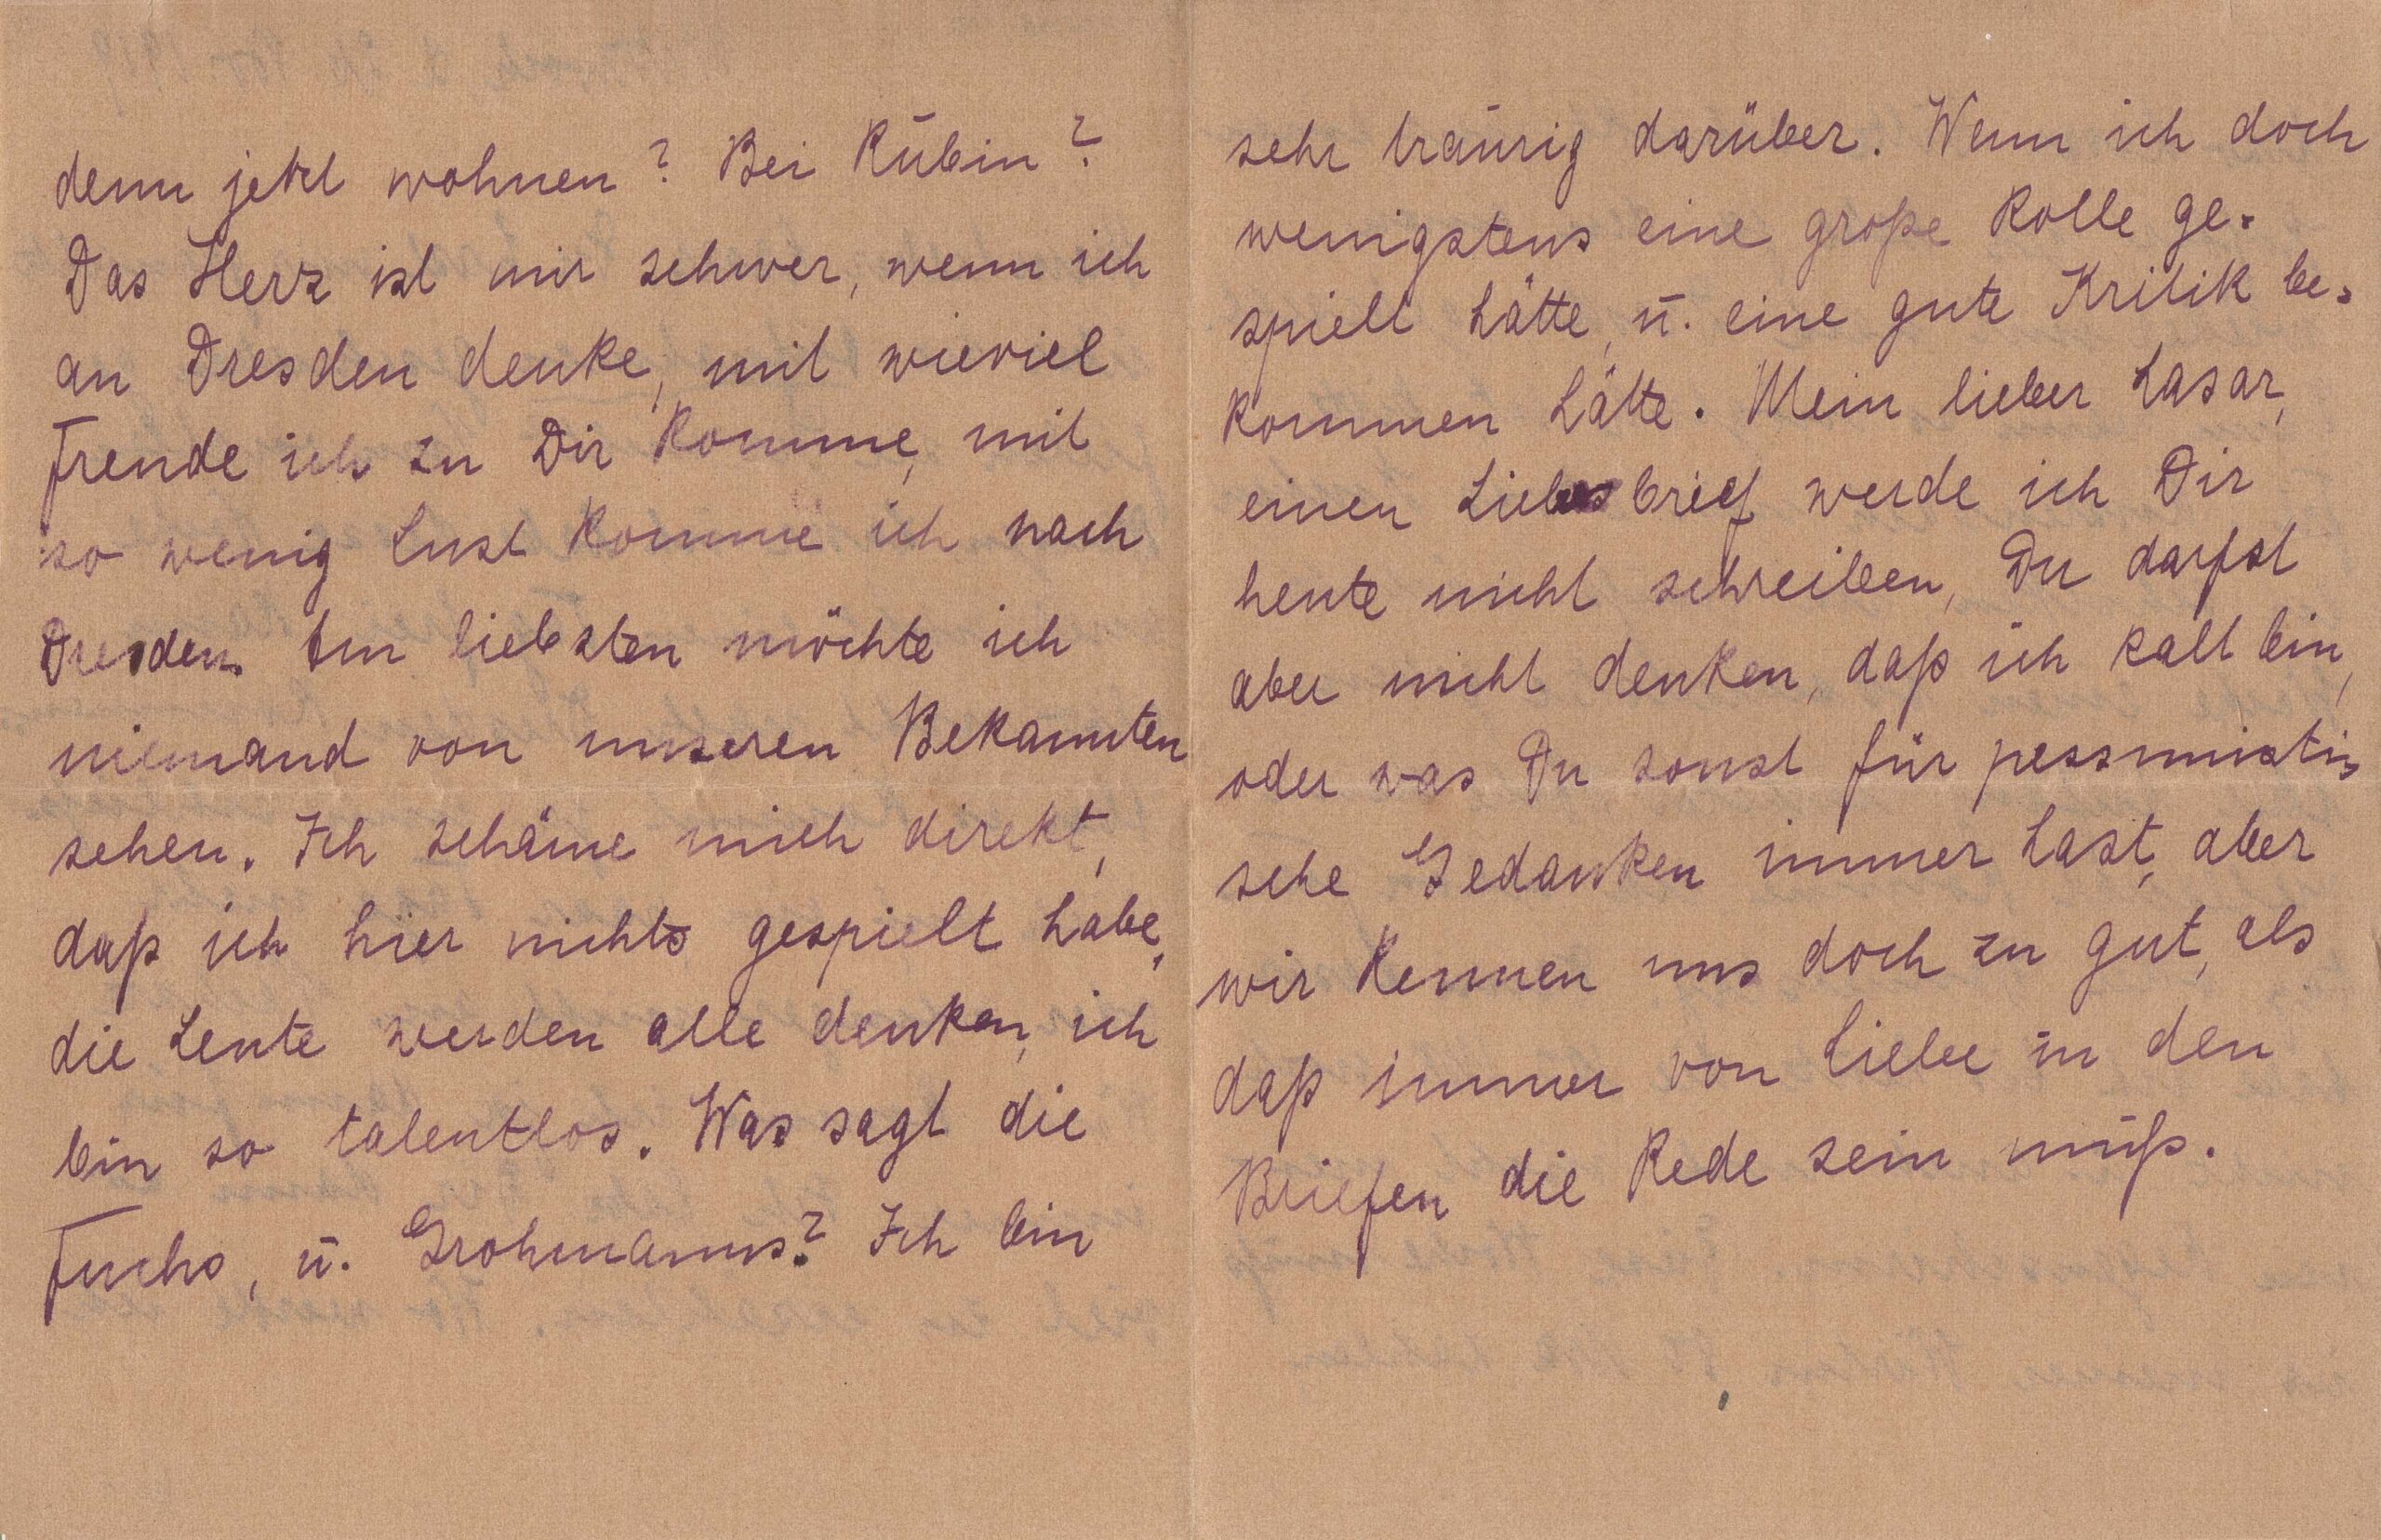 denn jetzt wohnen? Bei Rubin?
Das Herz ist mir schwer, wenn ich
an Dresden denke, mit wieviel
Freude ich zu Dir komme, mit
so wenig Lust komme ich nach
Dresden. Am liebsten möchte ich
niemand von unseren Bekannten
sehen. Ich schäme mich direkt,
daß ich hier nichts gespielt habe,
die Leute werden alle denken, ich
bin so talentlos. Was sagt die
Fuchs, u. Grohmanns? Ich bin
sehr traurig darüber. Wenn ich doch
wenigstens eine große Rolle ge-
spielt hätte, u. eine gute Kritik be-
kommen hätte. Mein lieber Lasar,
einen Liebesbrief werde ich Dir
heute nicht schreiben, Du darfst
aber nicht denken, daß ich kalt bin,
oder was Du sonst für pessimisti-
sche Gedanken immer hast, aber
wir kennen uns doch zu gut, als
daß immer von Liebe in den
Briefen die Rede sein muß.